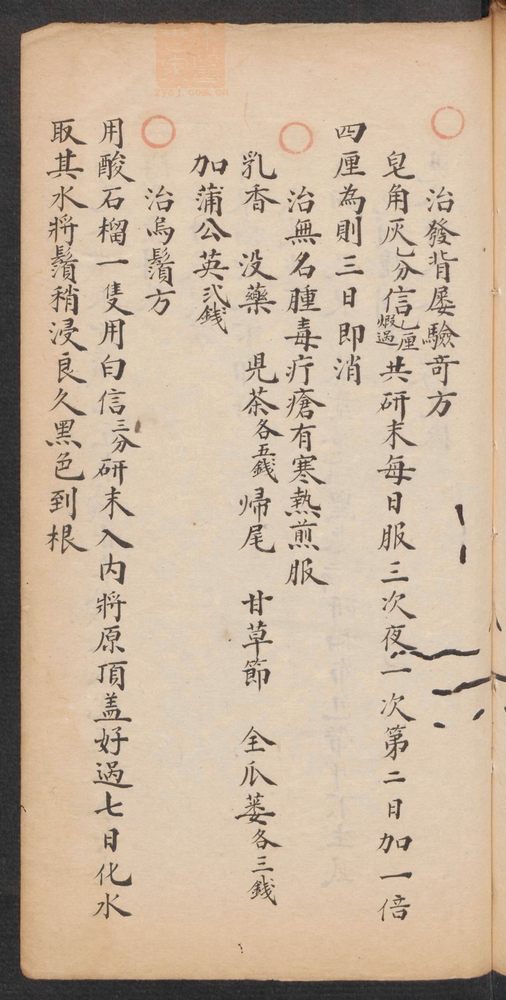 治發背屡驗奇方
皂角灰乙分信乙厘煅過共研末每日服三次夜一次第二日加一倍
四厘為則三日即消
治無名腫毒疔瘡有寒熱煎服
乳香 没藥 児茶各五錢 帰尾 甘草節 全瓜蒌各三錢
加蒲公英弍錢
治烏鬚方
用酸石榴一隻用白信三分研末入内將原頂盖好過七日化水
取其水將鬚稍浸良久黑色到根